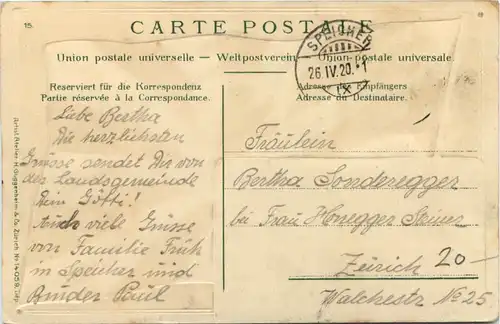 15.
CARTE POSTALE
Union postale universelle. — Weltpostverein — Union postale universale
SPEICHER
26.IV.20.-1
Reserviert für die Korrespondenz
Partie réservée à la Correspondance.
Adresse des Empfängers
Adresse du Destinataire.
Liebe Bertha
Die herzlichsten
Grüsse sendet Dir von
der Landsgemeinde
Dein Götti!
Auch viele Grüsse
von Familie Früh
in Speicher und
Bruder Paul
Fräulein
Bertha Sonderegger
bei Frau Honegger
Zürich 20-
Walchestr No 25
Guggenheim & Co. Zürich Nr. 14059